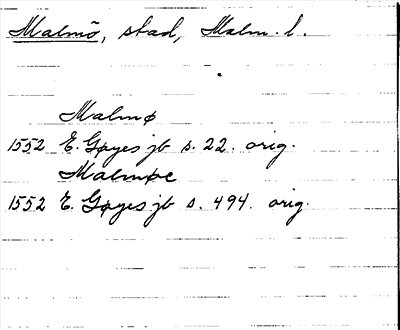 Malmö, stad, Malm. l.
Malmø
1552 E. Gøyes jb s. 22. orig.
Malmøe
1552 E. Gøyes jb s. 494. orig.